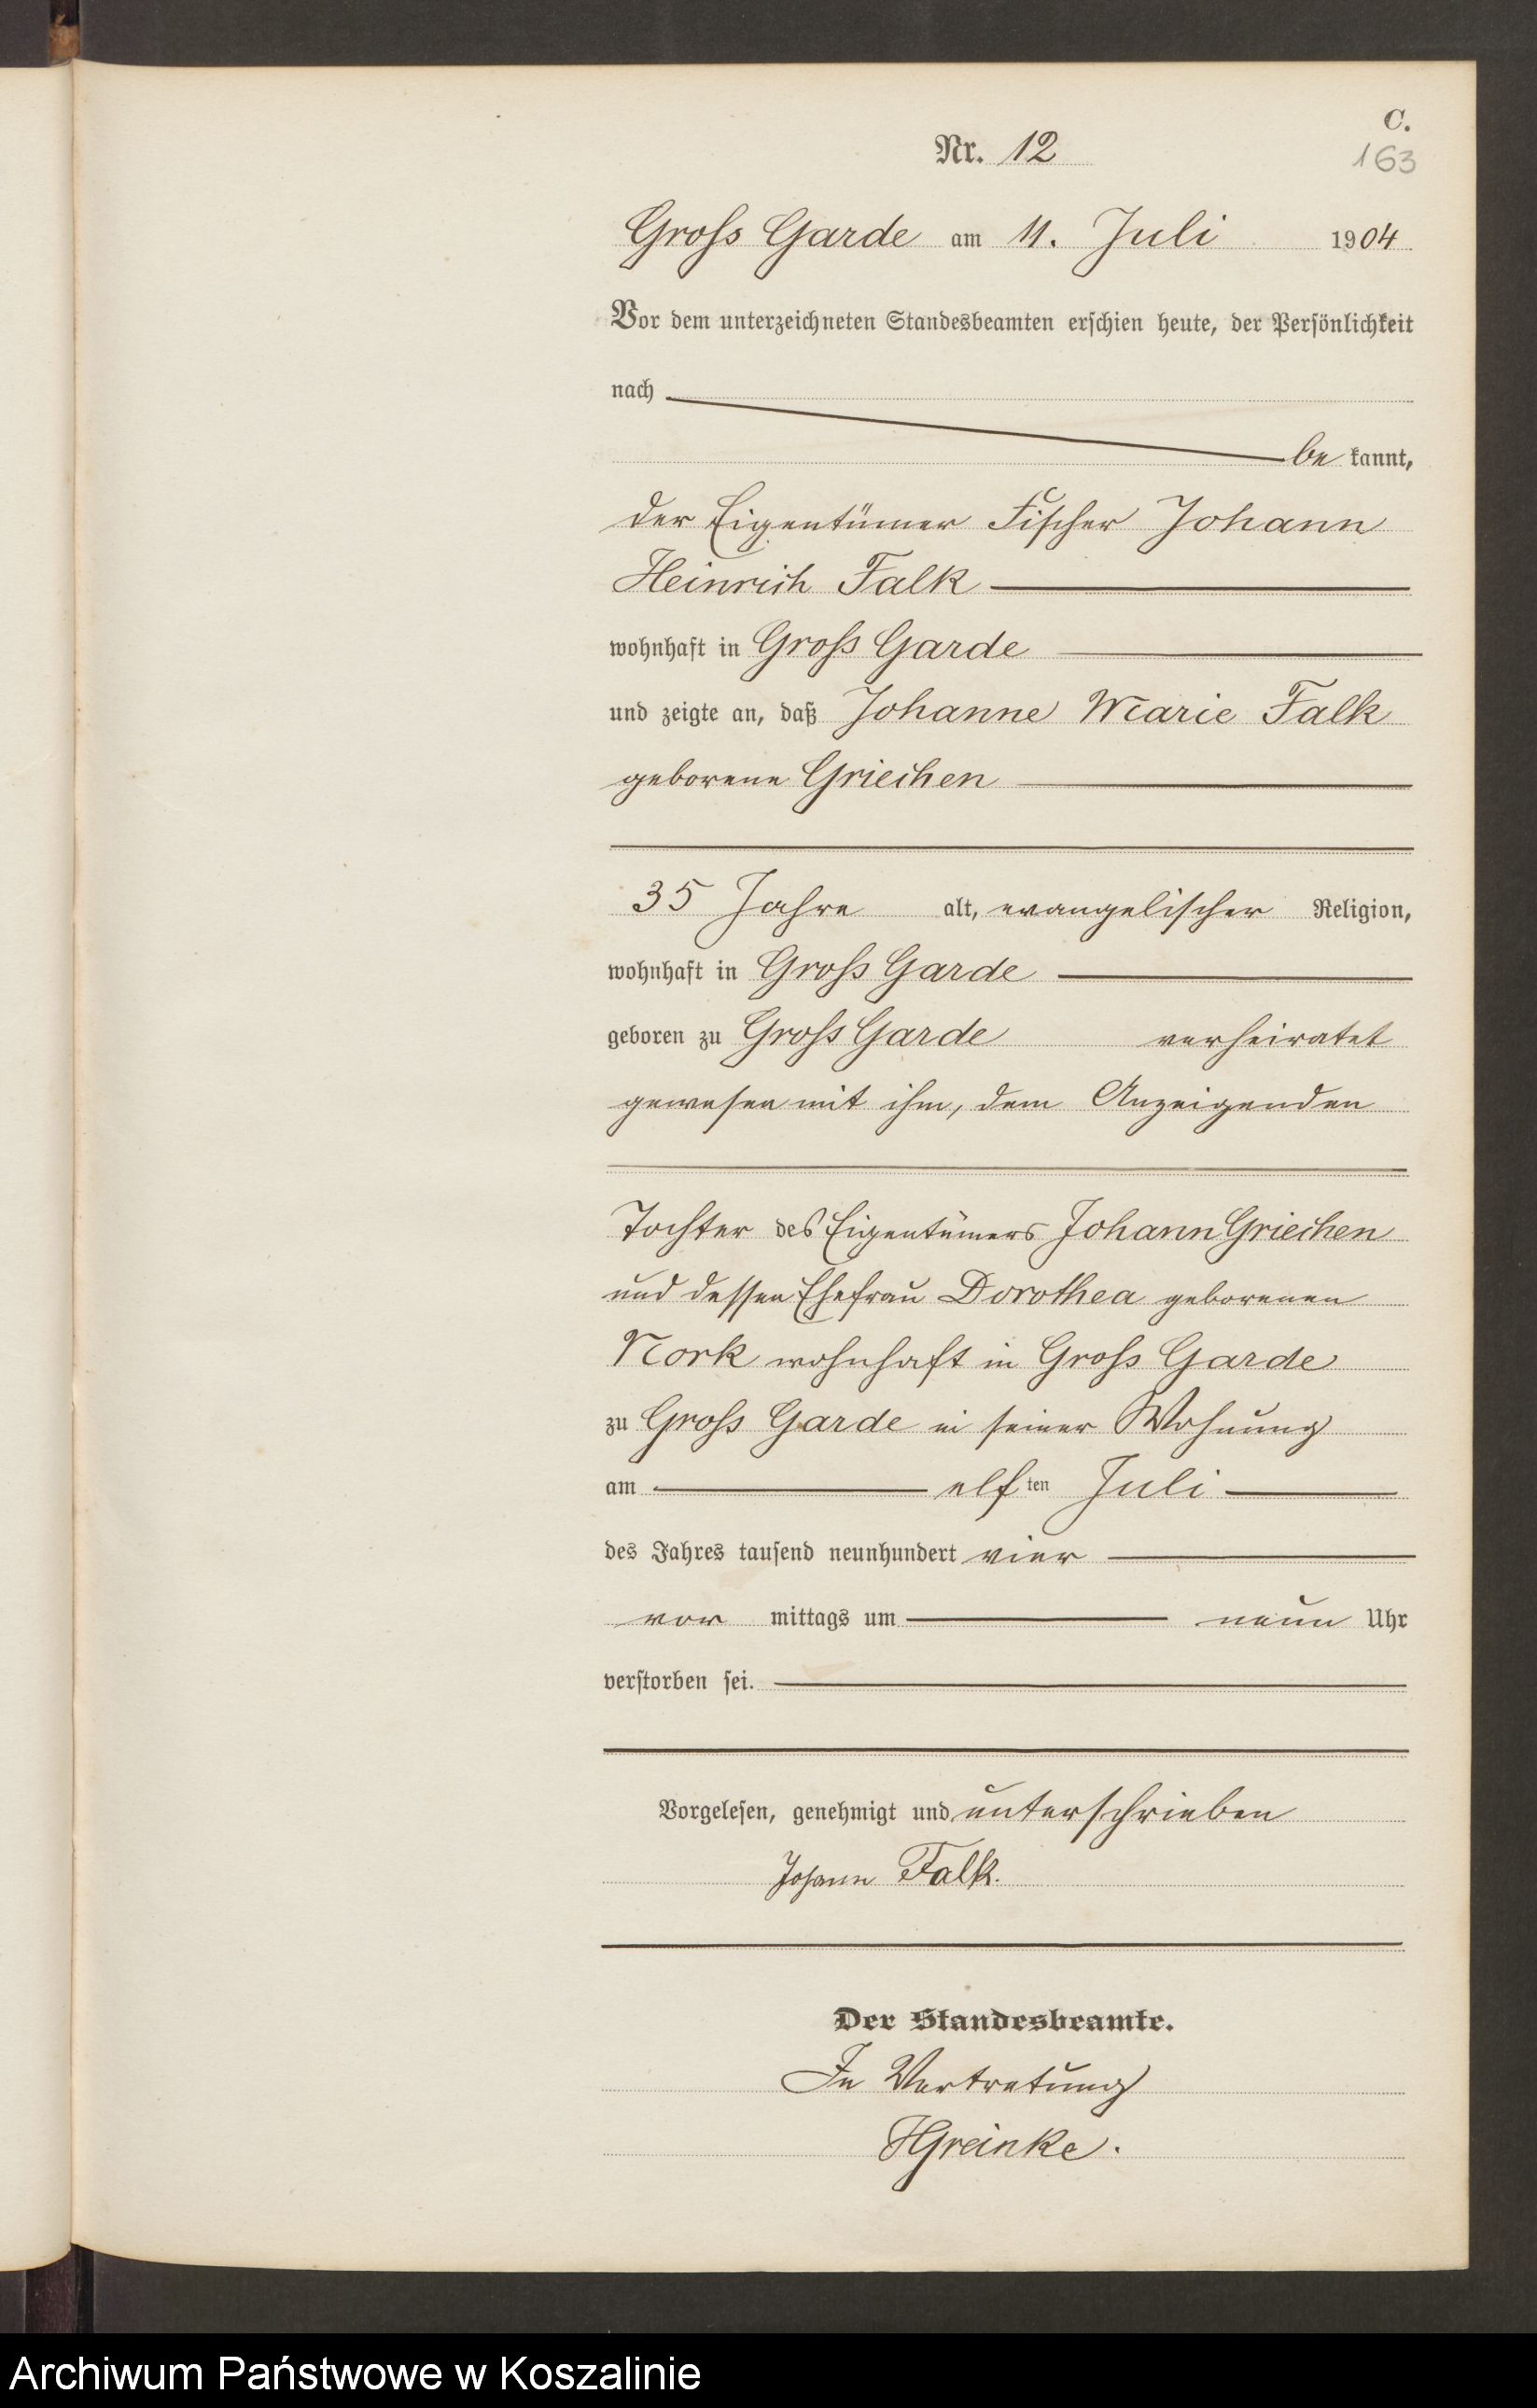 C.
Nr. 12
163
Gross Garde am 11. Juli 1904
Vor dem unterzeichneten Standesbeamten erschien heute, der Persönlichkeit
nach
be kannt,
der Eigentümer Fischer Johann
Heinrich Falk
wohnhaft in Gross Garde
und zeigte an, daß Johanne Marie Falk
geborene Griechen
35 Jahre alt, evangelischer Religion,
wohnhaft in Gross Garde
geboren zu Gross Garde verheiratet
gewesen mit ihm, dem Anzeigenden
Tochter des Eigentümers Johann Griechen
und dessen Ehefrau Dorothea geborenen
Nork wohnhaft in Gross Garde
zu Gross Garde in seiner Wohnung
am elf ten Juli
des Jahres tausend neunhundert vier
vor mittags um neun Uhr
verstorben sei.
Vorgelesen, genehmigt und unterschrieben
Johann Falk.
Der Standesbeamte.
In Vertretung
HGreinke.
Archiwum Państwowe w Koszalinie